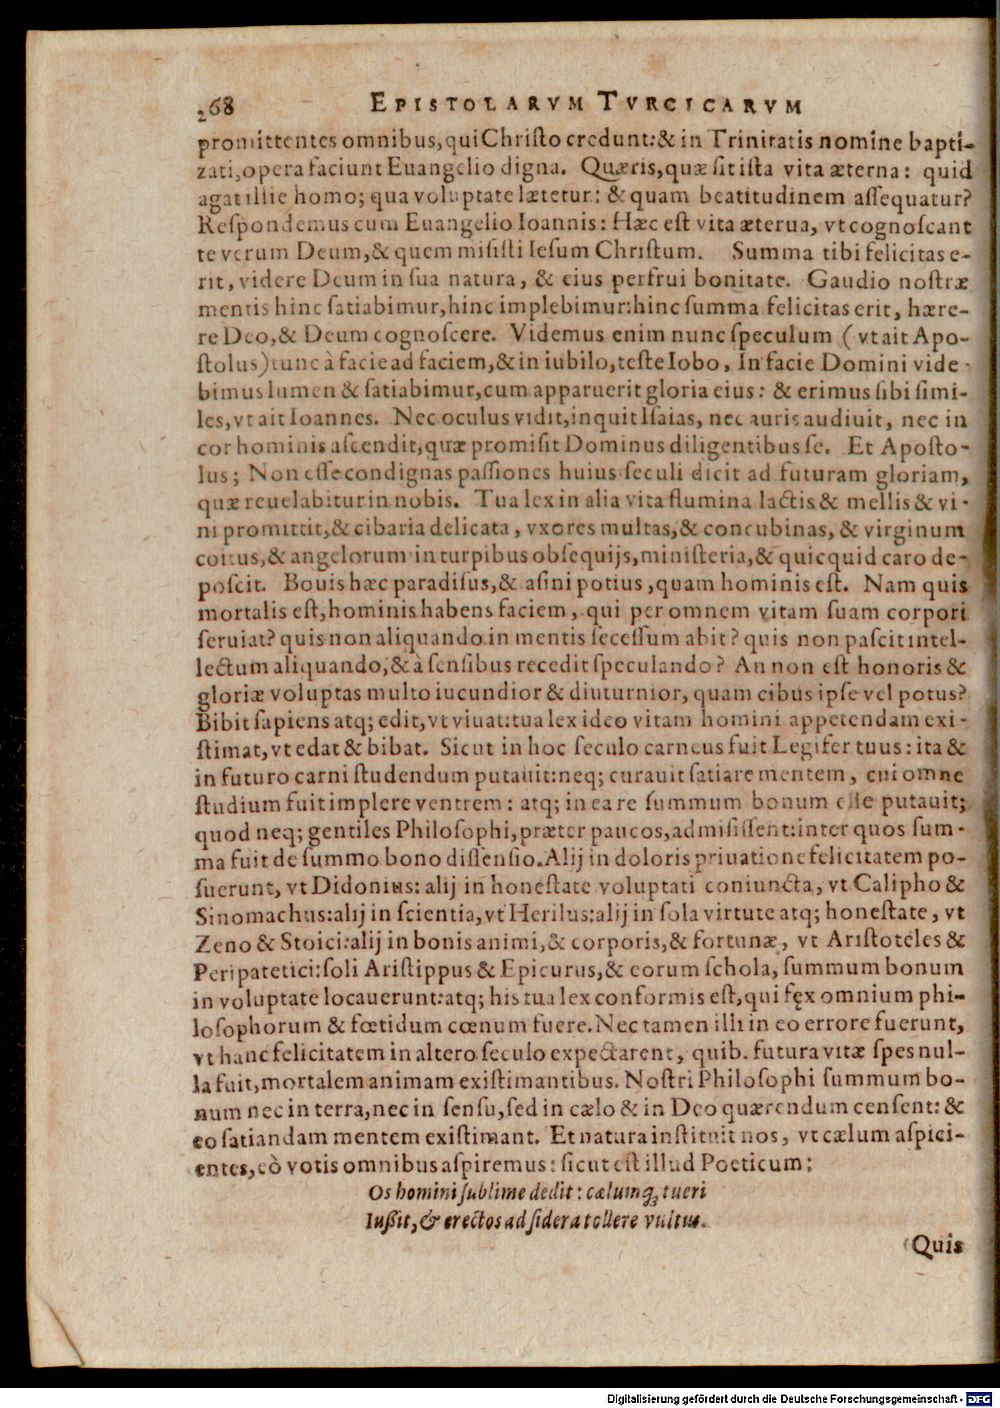 268 EPISTOLARVM TVRCICARVM
promittentes omnibus, qui Christo credunt: & in Trinitatis nomine bapti-
zati, opera faciunt Euangelio digna. Quæris, quæ sit ista vita æterna: quid
agat illic homo; qua voluptate lætetur: & quam beatitudinem assequatur?
Respondemus cum Euangelio Ioannis: Hæc est vita æterua, vt cognoscant
te verum Deum, & quem misisti Iesum Christum. Summa tibi felicitas e-
rit, videre Deum in sua natura, & eius perfrui bonitate. Gaudio nostræ
mentis hinc satiabimur, hinc implebimur: hinc summa felicitas erit, hære-
re Deo, & Deum cognoscere. Videmus enim nunc speculum (vt ait Apo-
stolus) tunc à facie ad faciem, & in iubilo, teste Iobo, In facie Domini vide-
bimus lumen & satiabimur, cum apparuerit gloria eius: & erimus sibi simi-
les, vt ait Ioannes. Nec oculus vidit, inquit Isaias, nec auris audiuit, nec in
cor hominis ascendit, quæ promisit Dominus diligentibus se. Et Aposto-
lus; Non esse condignas passiones huius seculi dicit ad futuram gloriam,
quæ reuelabitur in nobis. Tua lex in alia vita flumina lactis & mellis & vi-
ni promittit, & cibaria delicata, vxores multas, & concubinas, & virginum
coitus, & angelorum in turpibus obsequijs, ministeria, & quicquid caro de-
poscit. Bouis hæc paradisus, & asini potius, quam hominis est. Nam quis
mortalis est, hominis habens faciem, qui per omnem vitam suam corpori
seruiat? quis non aliquando in mentis secessum abit? quis non pascit intel-
lectum aliquando, & à sensibus recedit speculando? An non est honoris &
gloriæ voluptas multo iucundior & diuturnior, quam cibus ipse vel potus?
Bibit sapiens atq; edit, vt viuat: tua lex ideo vitam homini appetendam exi-
stimat, vt edat & bibat. Sicut in hoc seculo carneus fuit Legifer tuus: ita &
in futuro carni studendum putauit: neq; curauit satiare mentem, cui omne
studium fuit implere ventrem: atq; in ea re summum bonum esse putauit;
quod neq; gentiles Philosophi, præter paucos, admisissent: inter quos sum-
ma fuit de summo bono dissensio. Alij in doloris priuatione felicitatem po-
suerunt, vt Didonius: alij in honestate voluptati coniuncta, vt Calipho &
Sinomachus: alij in scientia, vt Herilus: alij in sola virtute atq; honestate, vt
Zeno & Stoici: alij in bonis animi, & corporis, & fortunæ, vt Aristoteles &
Peripatetici: soli Aristippus & Epicurus, & eorum schola, summum bonum
in voluptate locauerunt: atq; his tua lex conformis est, qui fęx omnium phi-
losophorum & fœtidum cœnum fuere. Nec tamen illi in eo errore fuerunt,
vt hanc felicitatem in altero seculo expectarent, quib. futura vitæ spes nul-
la fuit, mortalem animam existimantibus. Nostri Philosophi summum bo-
num nec in terra, nec in sensu, sed in cælo & in Deo quærendum censent: &
eo satiandam mentem existimant. Et natura instituit nos, vt cælum aspici-
entes, eò votis omnibus aspiremus: sicut est illud Poeticum;
Os homini sublime dedit: cælumq; tueri
Iußit, & erectos ad sidera tollere vultus.
Quis
Digitalisierung gefördert durch die Deutsche Forschungsgemeinschaft - DFG